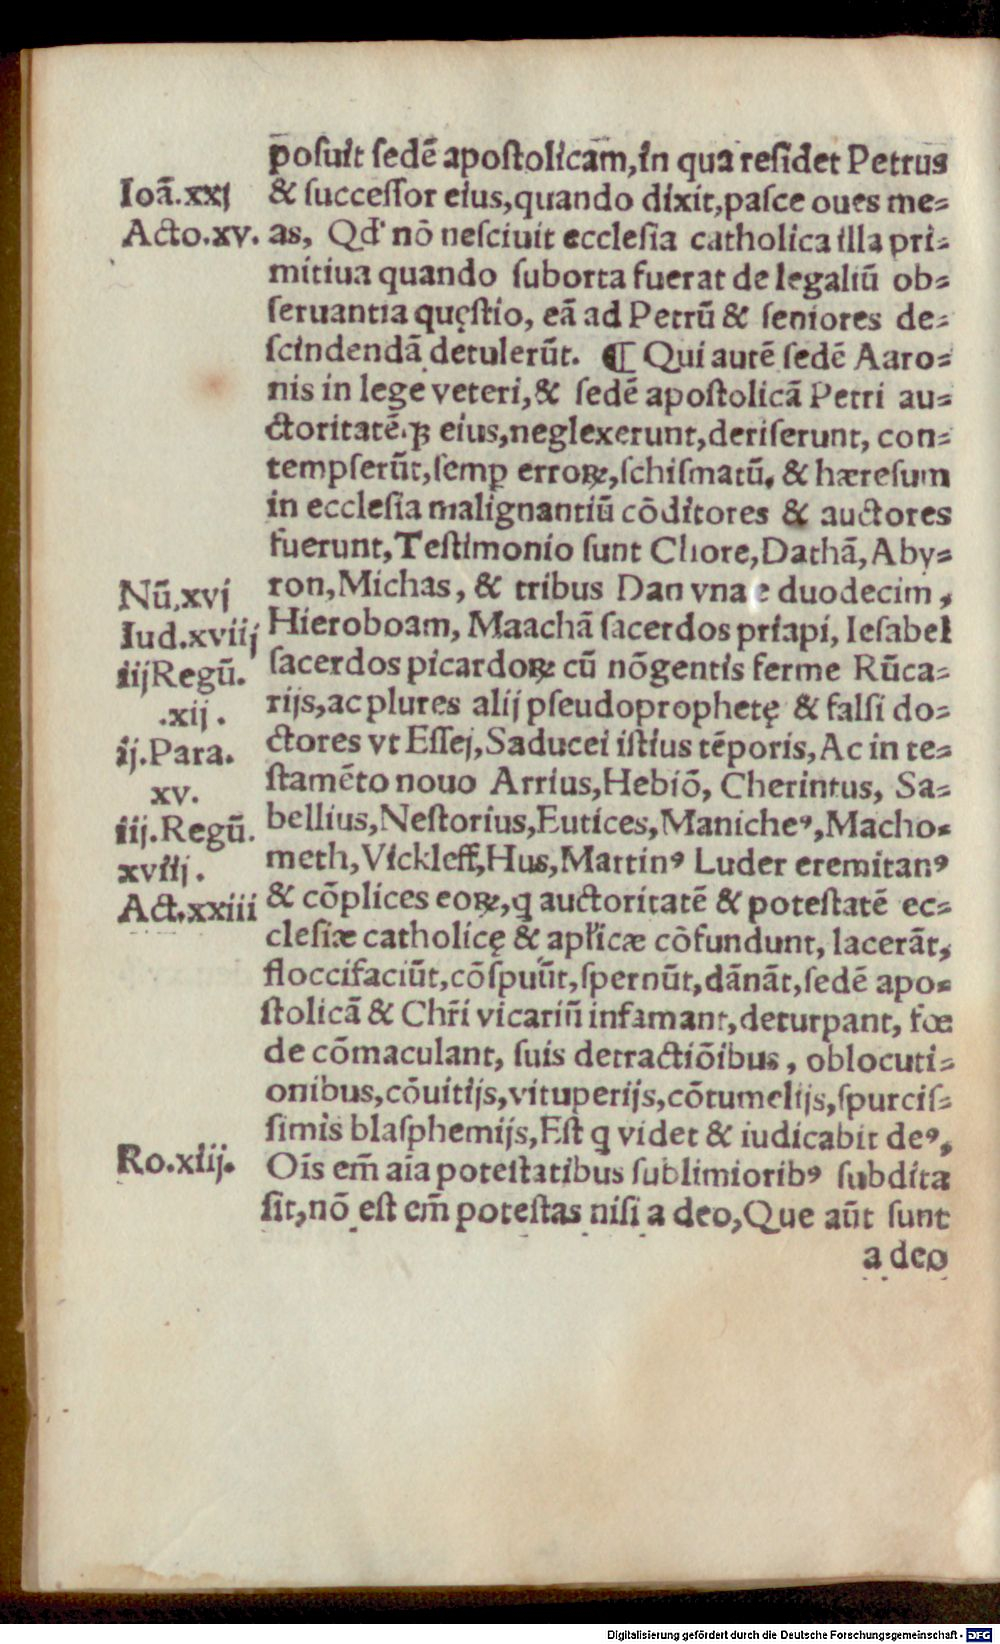 p̄osuit sedē apostolicam, in qua residet Petrus
Ioā.xxj
& successor eius, quando dixit, pasce oues me⸗
Acto.xv.
as, Qđ nō nesciuit ecclesia catholica illa pri⸗
mitiua quando suborta fuerat de legaliū ob⸗
seruantia quęstio, eā ad Petrū & seniores de⸗
scindendā detulerūt. ¶ Qui autē sedē Aaro⸗
nis in lege veteri, & sedē apostolicā Petri au⸗
ctoritatē.qꝫ eius, neglexerunt, deriserunt, con⸗
tempserūt, semꝑ erroꝝ, schismatū, & hæresum
in ecclesia malignantiū cōditores & auctores
fuerunt, Testimonio sunt Chore, Dathā, Aby⸗
Nū.xvj
ron, Michas, & tribus Dan vna e duodecim,
Iud.xviij
Hieroboam, Maachā sacerdos priapi, Iesabel
iijRegū.
sacerdos picardoꝝ cū nōgentis ferme Rūca⸗
.xij.
rijs, ac plures alij pseudoprophetę & falsi do⸗
ij.Para.
ctores vt Essej, Saducei istius tēporis, Ac in te⸗
xv.
stamēto nouo Arrius, Hebiō, Cherintus, Sa⸗
iij.Regū.
bellius, Nestorius, Eutices, Manicheꝰ, Macho⸗
xviij.
meth, Vickleff, Hus, Martinꝰ Luder eremitanꝰ
Act.xxiii
& cōplices eoꝝ, q auctoritatē & potestatē ec⸗
clesiæ catholicę & apl̄icæ cōfundunt, lacerāt,
floccifaciūt, cōspuūt, spernūt, dānāt, sedē apo⸗
stolicā & Chr̄i vicariū infamant, deturpant, fœ
de cōmaculant, suis detractiōibus, oblocuti⸗
onibus, cōuitijs, vituperijs, cōtumelijs, spurcis⸗
simis blasphemijs, Est q videt & iudicabit deꝰ,
Ro.xiij.
Oīs em̄ aīa potestatibus sublimioribꝰ subdita
sit, nō est em̄ potestas nisi a deo, Que aūt sunt
a deo
Digitalisierung gefördert durch die Deutsche Forschungsgemeinschaft - DFG